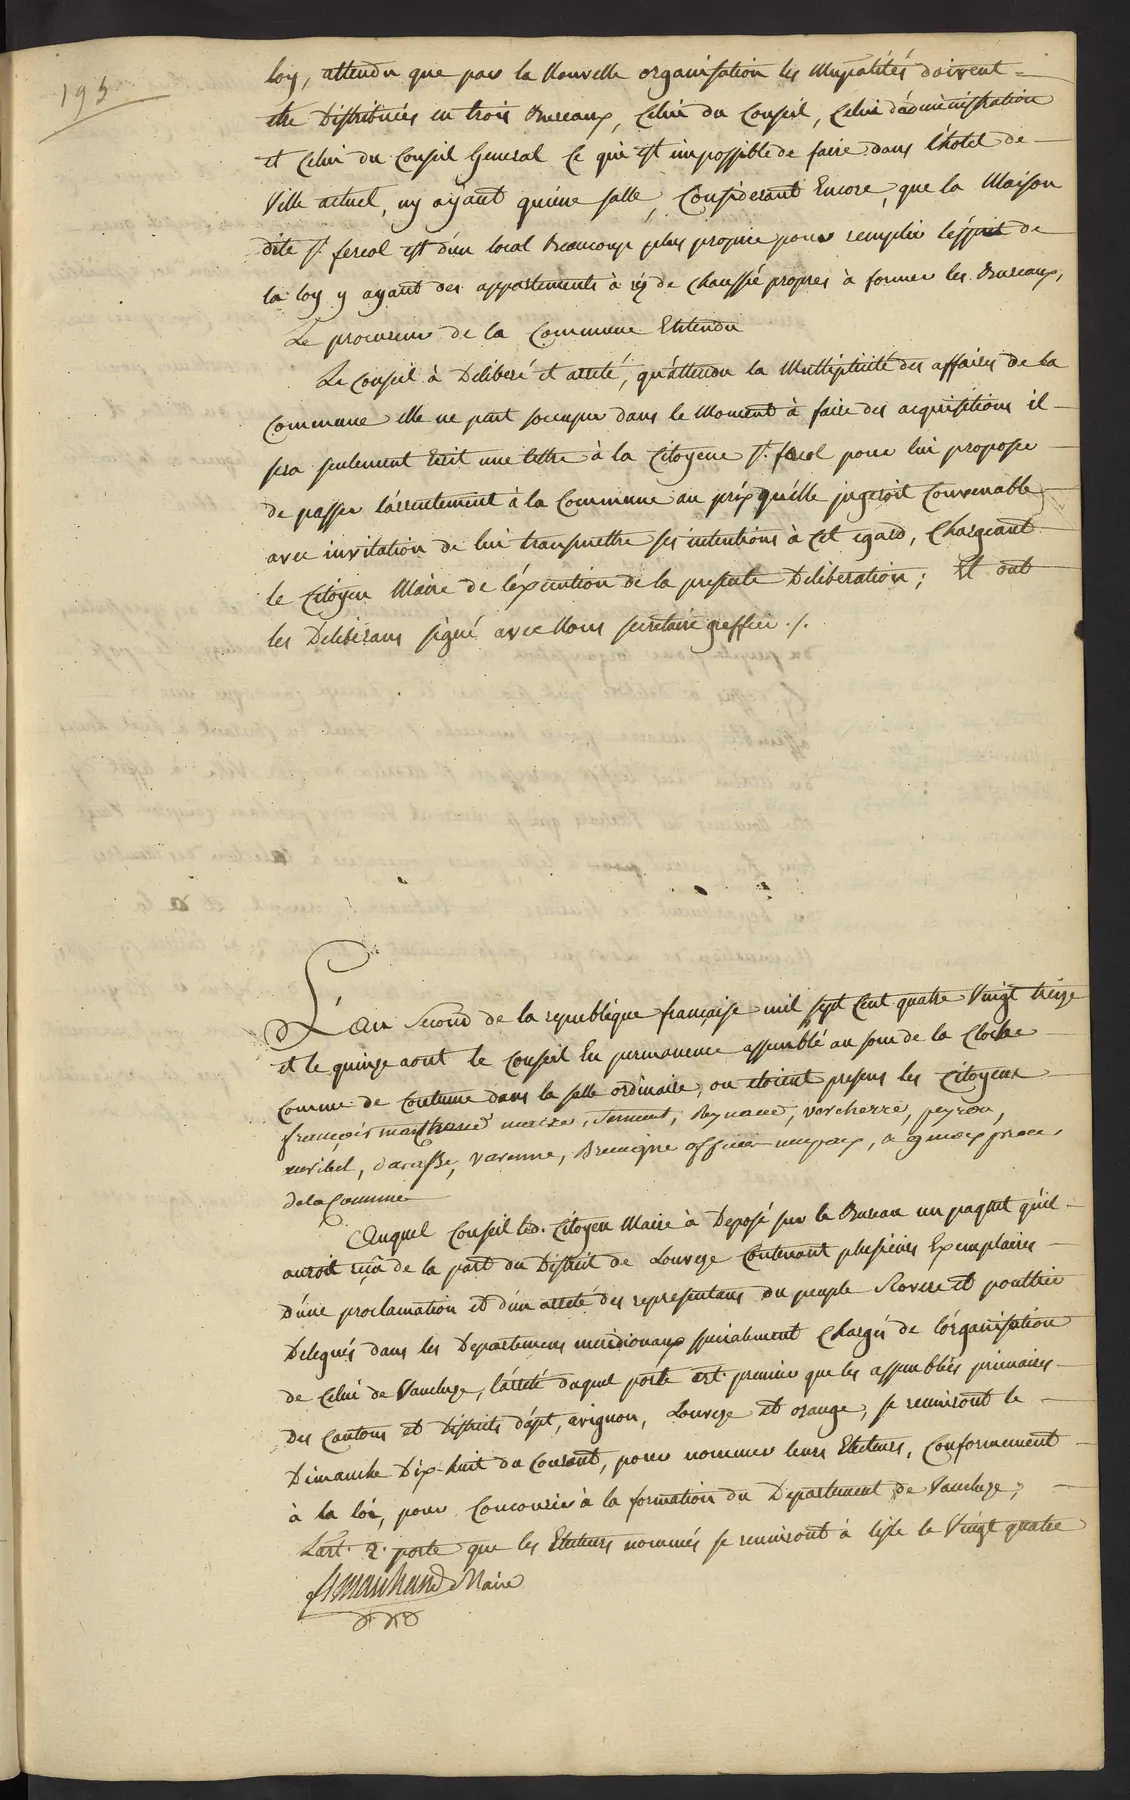 193
loy, attendu que par la Nouvelle organisation les Mupalités doivent
etre Distribuées en trois Bureaux, Celui du Conseil, Celui d'administration
et Celui du Conseil General Ce qui est impossible de faire dans l'hotel de
Ville actuel, ny ayant qu'une salle, Considerant Encore, que la Maison
dite St. fereol est d'un local Beaucoup plus propice pour remplir l'esprit de
la loy y ayant des appartements à réz de Chaussée propres à former les Bureaux,
Le procureur de la Commune Entendu
Le Conseil à Deliberé et arreté, qu'attendu la Multiplicité des affaires de la
Commune elle ne peut soccuper dans le Moment à faire des acquisitions il
sera seulement Ecrit une lettre à la Citoyene St. fereol pour lui proposer
de passer l'arrentement à la Commune au prix qu'elle jugeroit Convenable
avec invitation de lui transmettre ses intentions à Cet egard, Chargeant
le Citoyen Maire de l'éxécution de la presente Deliberation; Et ont
les Deliberans signé avec Nous secretaire greffier ./.
L'an Second de la republique française mil sept Cent quatre Vingt treize
et le quinze aout le Conseil En permanence assemblé au son de la Cloche
Comme de Coutume dans la salle ordinaire, ou etoient presens les Citoyens
françois marchand maire, Serment, Reynaud, vercherre, peyron,
muribel, ducasse, varenne, officiers mupaux, procr.
de la Commune
Auquel Conseil led. Citoyen Maire à Deposé sur le Bureau un paquet qu'il
auroit reçu de la part du District de Louveze Contenant plusieurs Exemplaires
D'une proclamation et d'un arreté des representans du peuple Rovere et poultier
Delegués dans les Departemens meridionaux specialement Chargés de l'organisation
de Celui de Vaucluse, l'arreté duquel porte art. premier que les assemblées primaires
Des Cantons et Districts d'apt, avignon, Louveze et orange, se reuniront le
Dimanche Dix-huit du Courant, pour nommer leurs Electeurs, Conformement
à la loi, pour Concourir à la formation du Departement de Vaucluse;
L'art. 2. porte que les Electeurs nommés se reuniront à lisle le Vingt quatre
marchand Maire